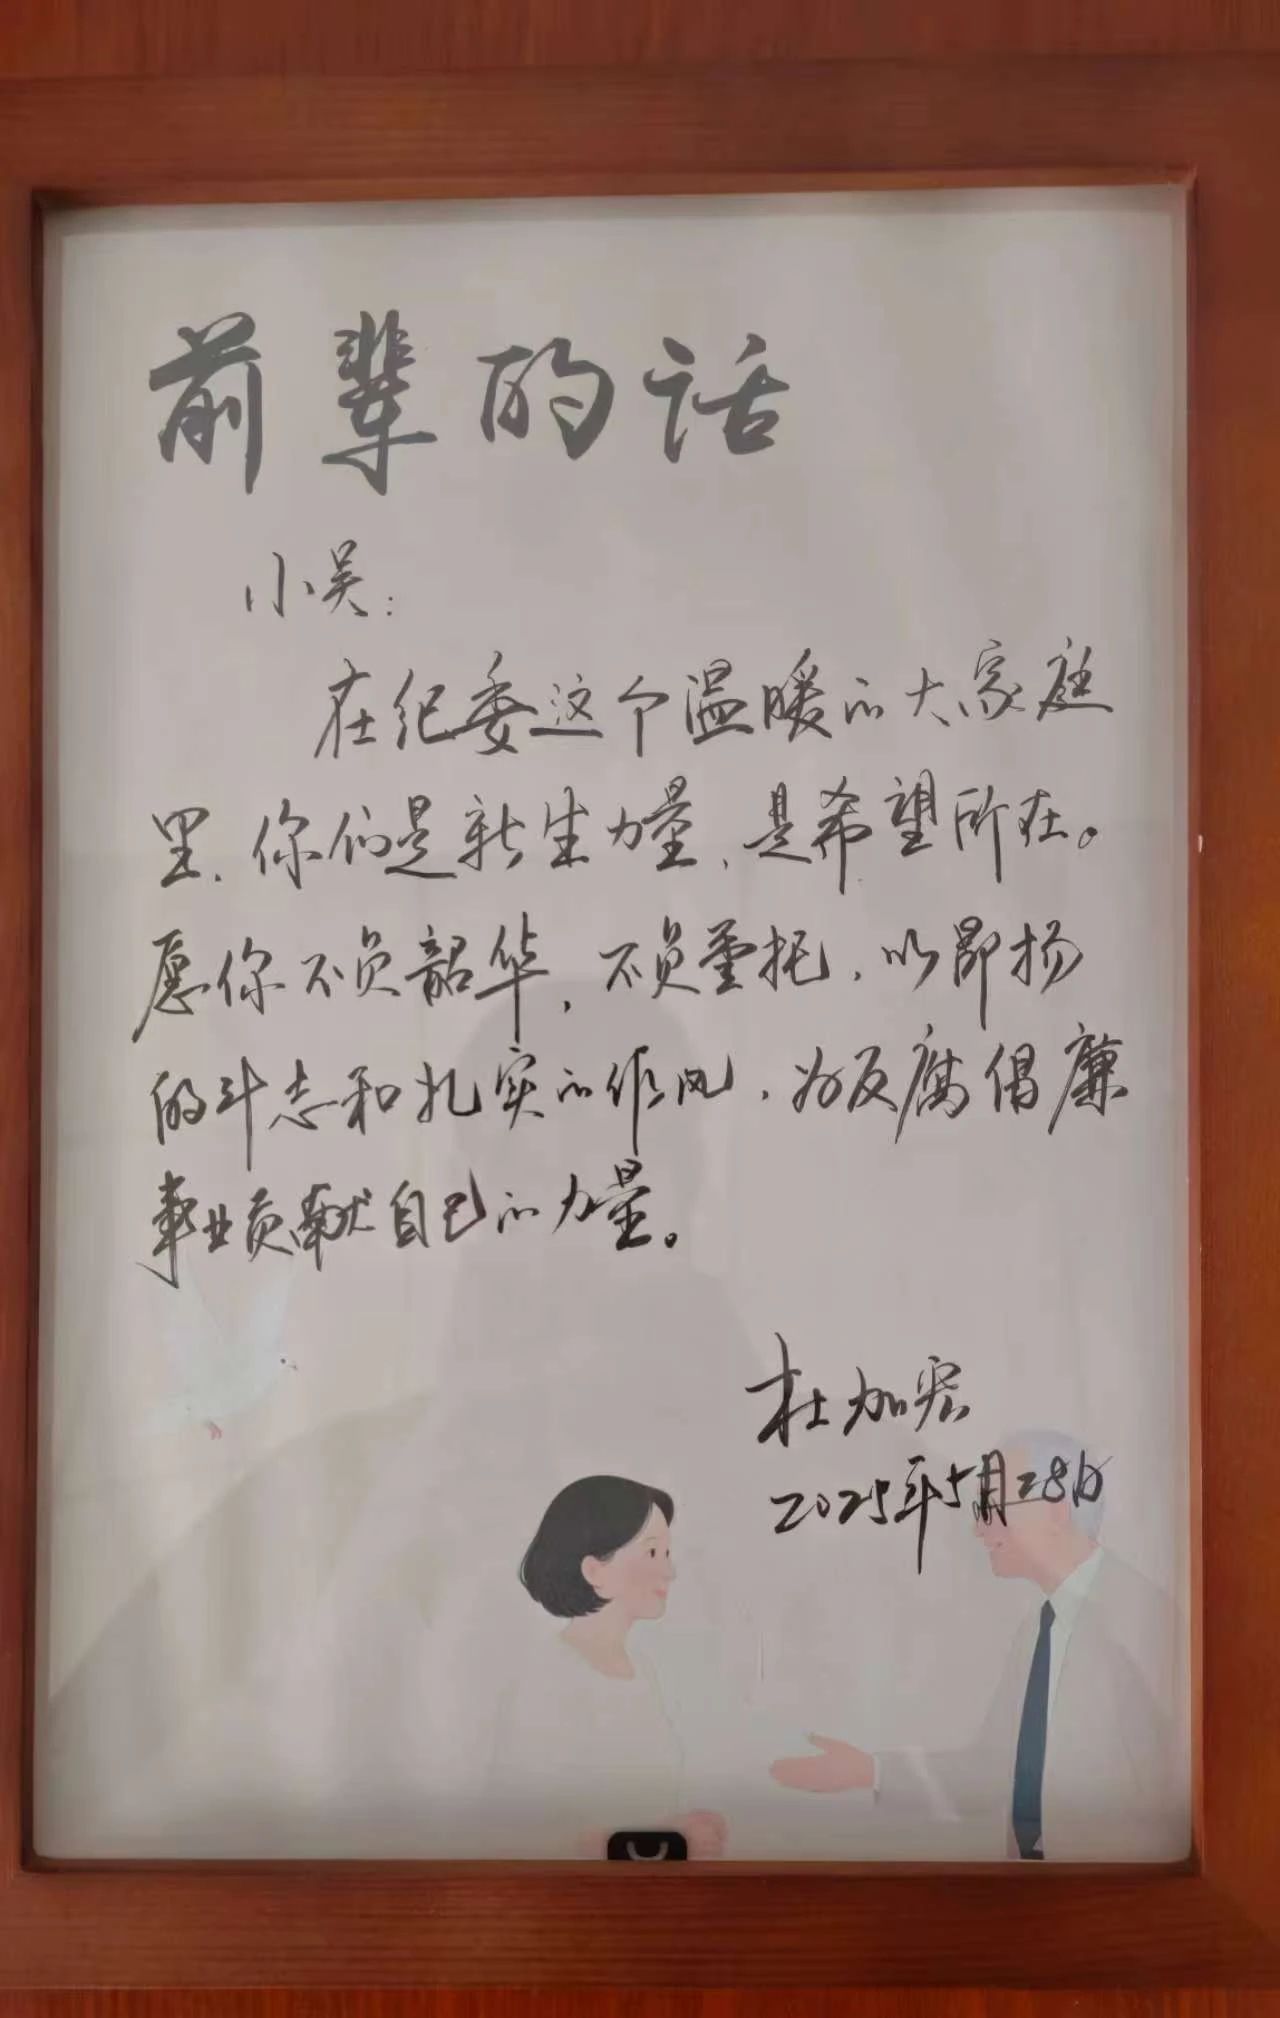 前辈的话
小吴：
在纪委这个温暖的大家庭
里，你们是新生力量，是希望所在。
愿你不负韶华，不负重托，以昂扬
的斗志和扎实的作风，为反腐倡廉
事业贡献自己的力量。
杜加宏
2025年5月28日